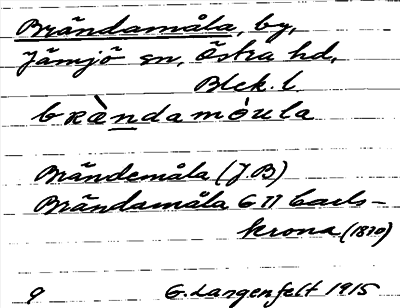 Brändamåla, by,
Jämjö sn, Östra hd,
Blek. l.
bʀὰndamòula
Brändemåla (J.B)
Brändamåla G 11 Carls-
krona (1870)
9 G. Langenfelt 1915